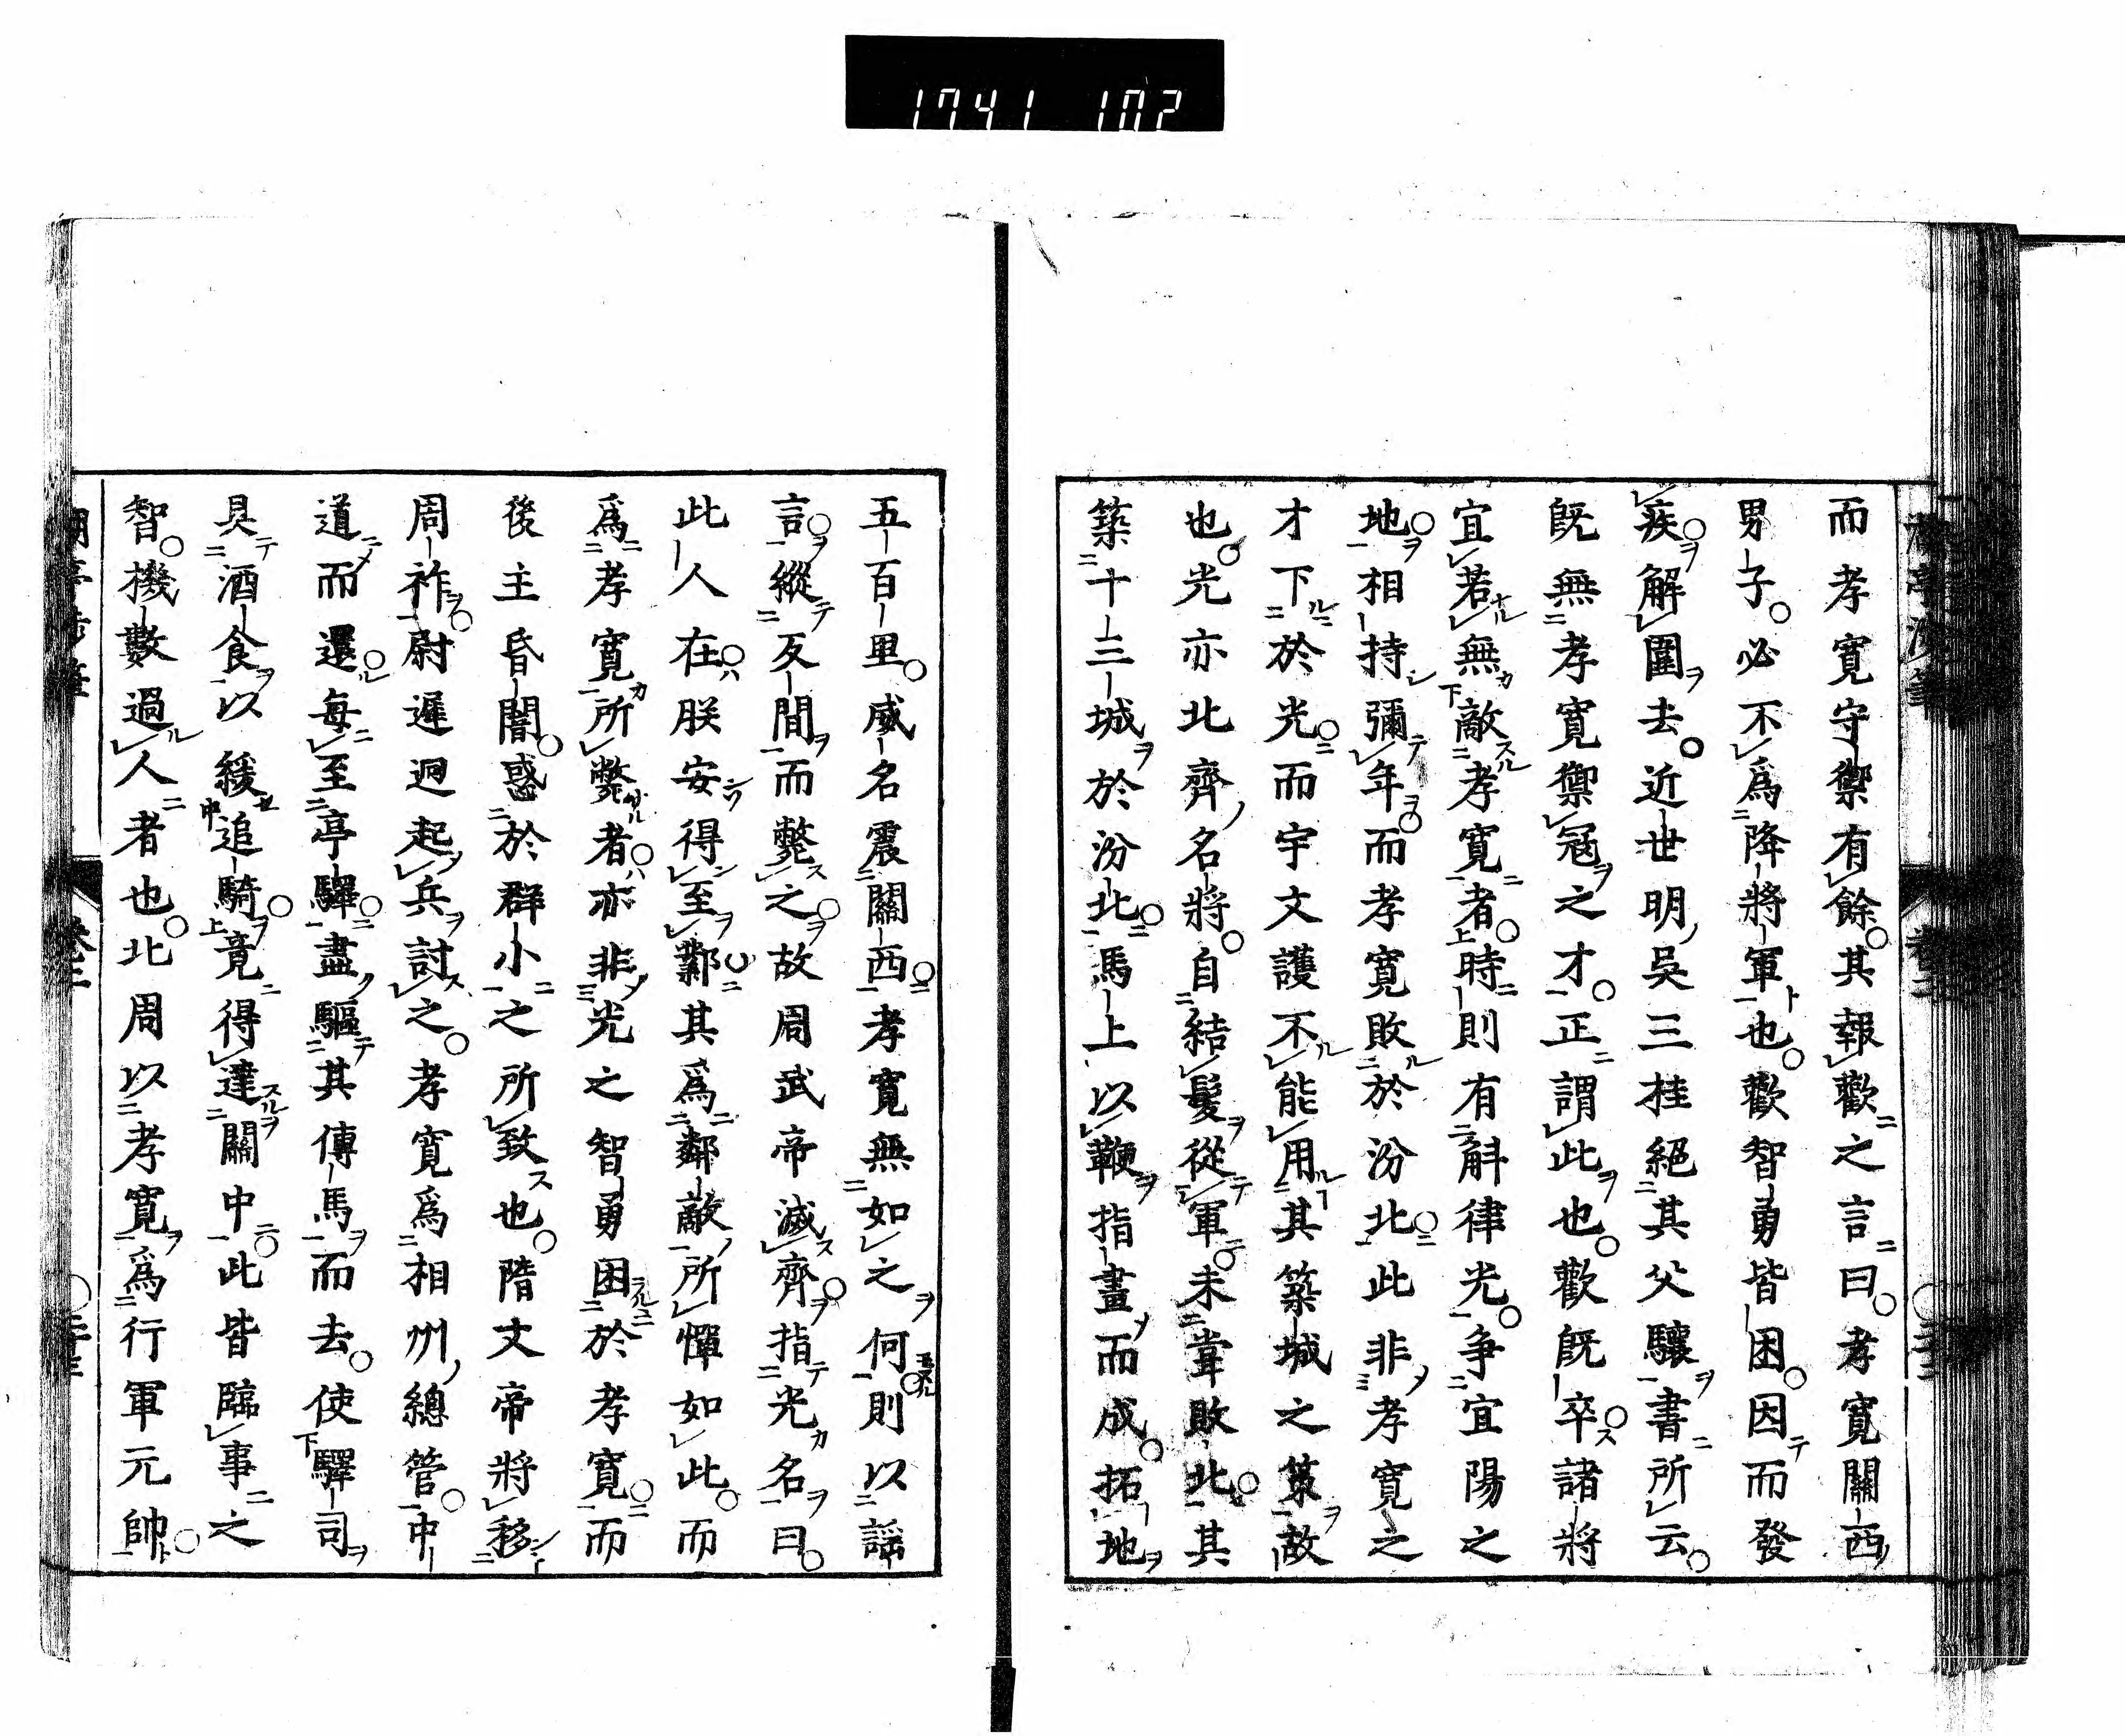 1741 102
而孝寬守禦有餘其報歡之言曰孝寬關西
男子必不爲降將軍也歡智勇皆困因而發
疾解圍去近世明吳三桂絕其父驤書所云
旣無孝寬禦冦之才正謂此也歡旣卒諸將
宜若無敵孝寬者時則有斛律光爭宜陽之
地相持彌年而孝寬敗於汾北此非孝寬之
才下於光而宇文護不能用其築城之策故
也光亦北齊名將自結髮從軍未甞敗北其
築十三城於汾北馬上以鞭指畫而成拓地
五百里威名震關西孝寬無如之何則以謡
言縱反間而斃之故周武帝滅齊指光名曰
此人在朕安得至鄴其爲鄰敵所憚如此而
爲孝寬所斃者亦非光之智勇困於孝寬而
後主昏闇惑於群小之所致也隋文帝將移
周祚尉遲迥起兵討之孝寬爲相州總管中
道而還每至亭驛盡驅其傳馬而去使驛司
具酒食以緩追騎竟得達關中此皆臨事之
智機數過人者也北周以孝寬爲行軍元帥